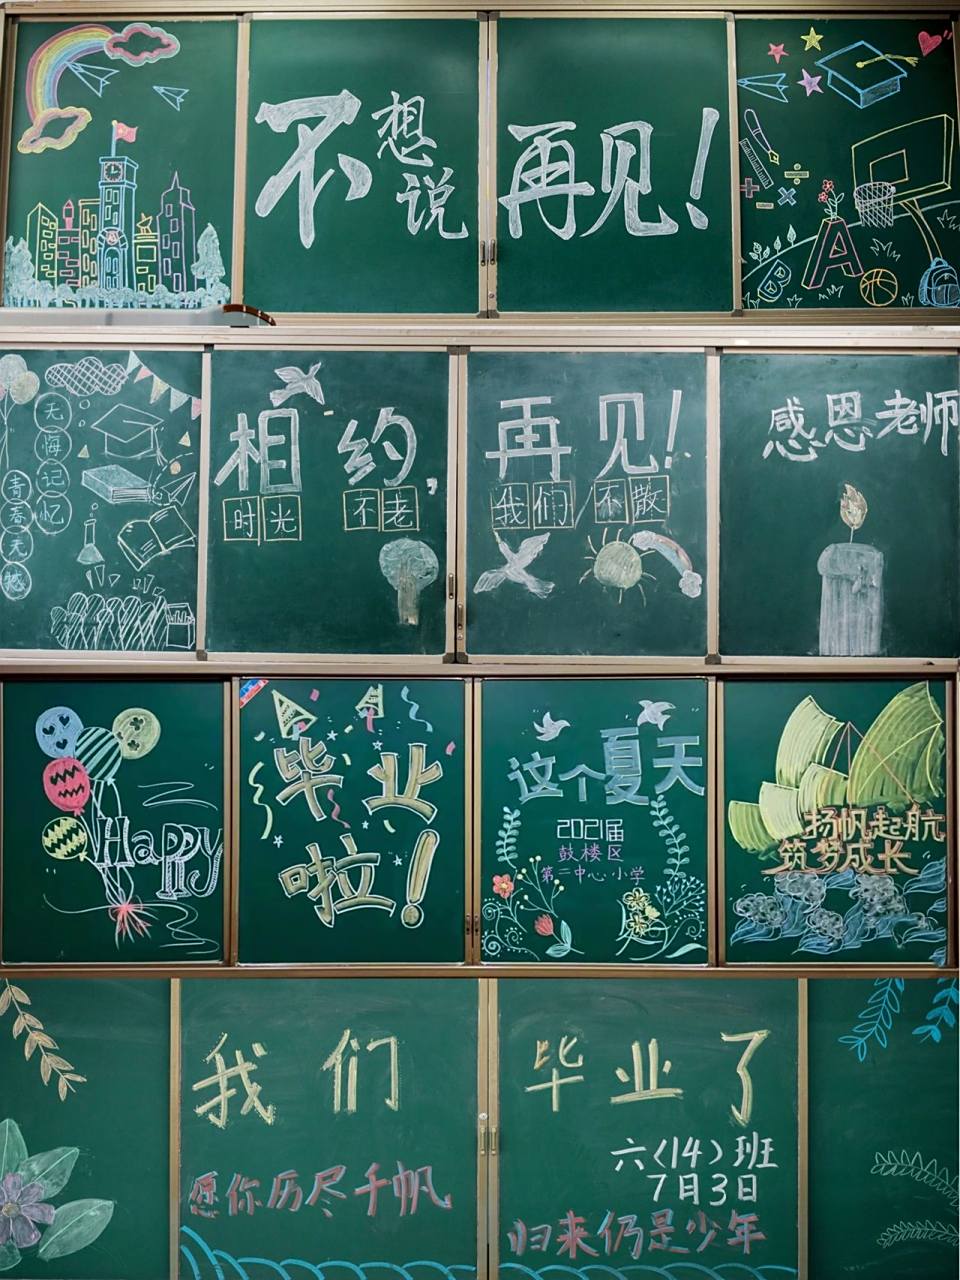 不想说再见！
B A
无悔记忆
青春无憾
相约，再见！
时光不老 我们不散
感恩老师
Happy
毕业啦！
这个夏天
2021届
鼓楼区
第二中心小学
扬帆起航
筑梦成长
我们毕业了
六（14）班
7月3日
愿你历尽千帆
归来仍是少年